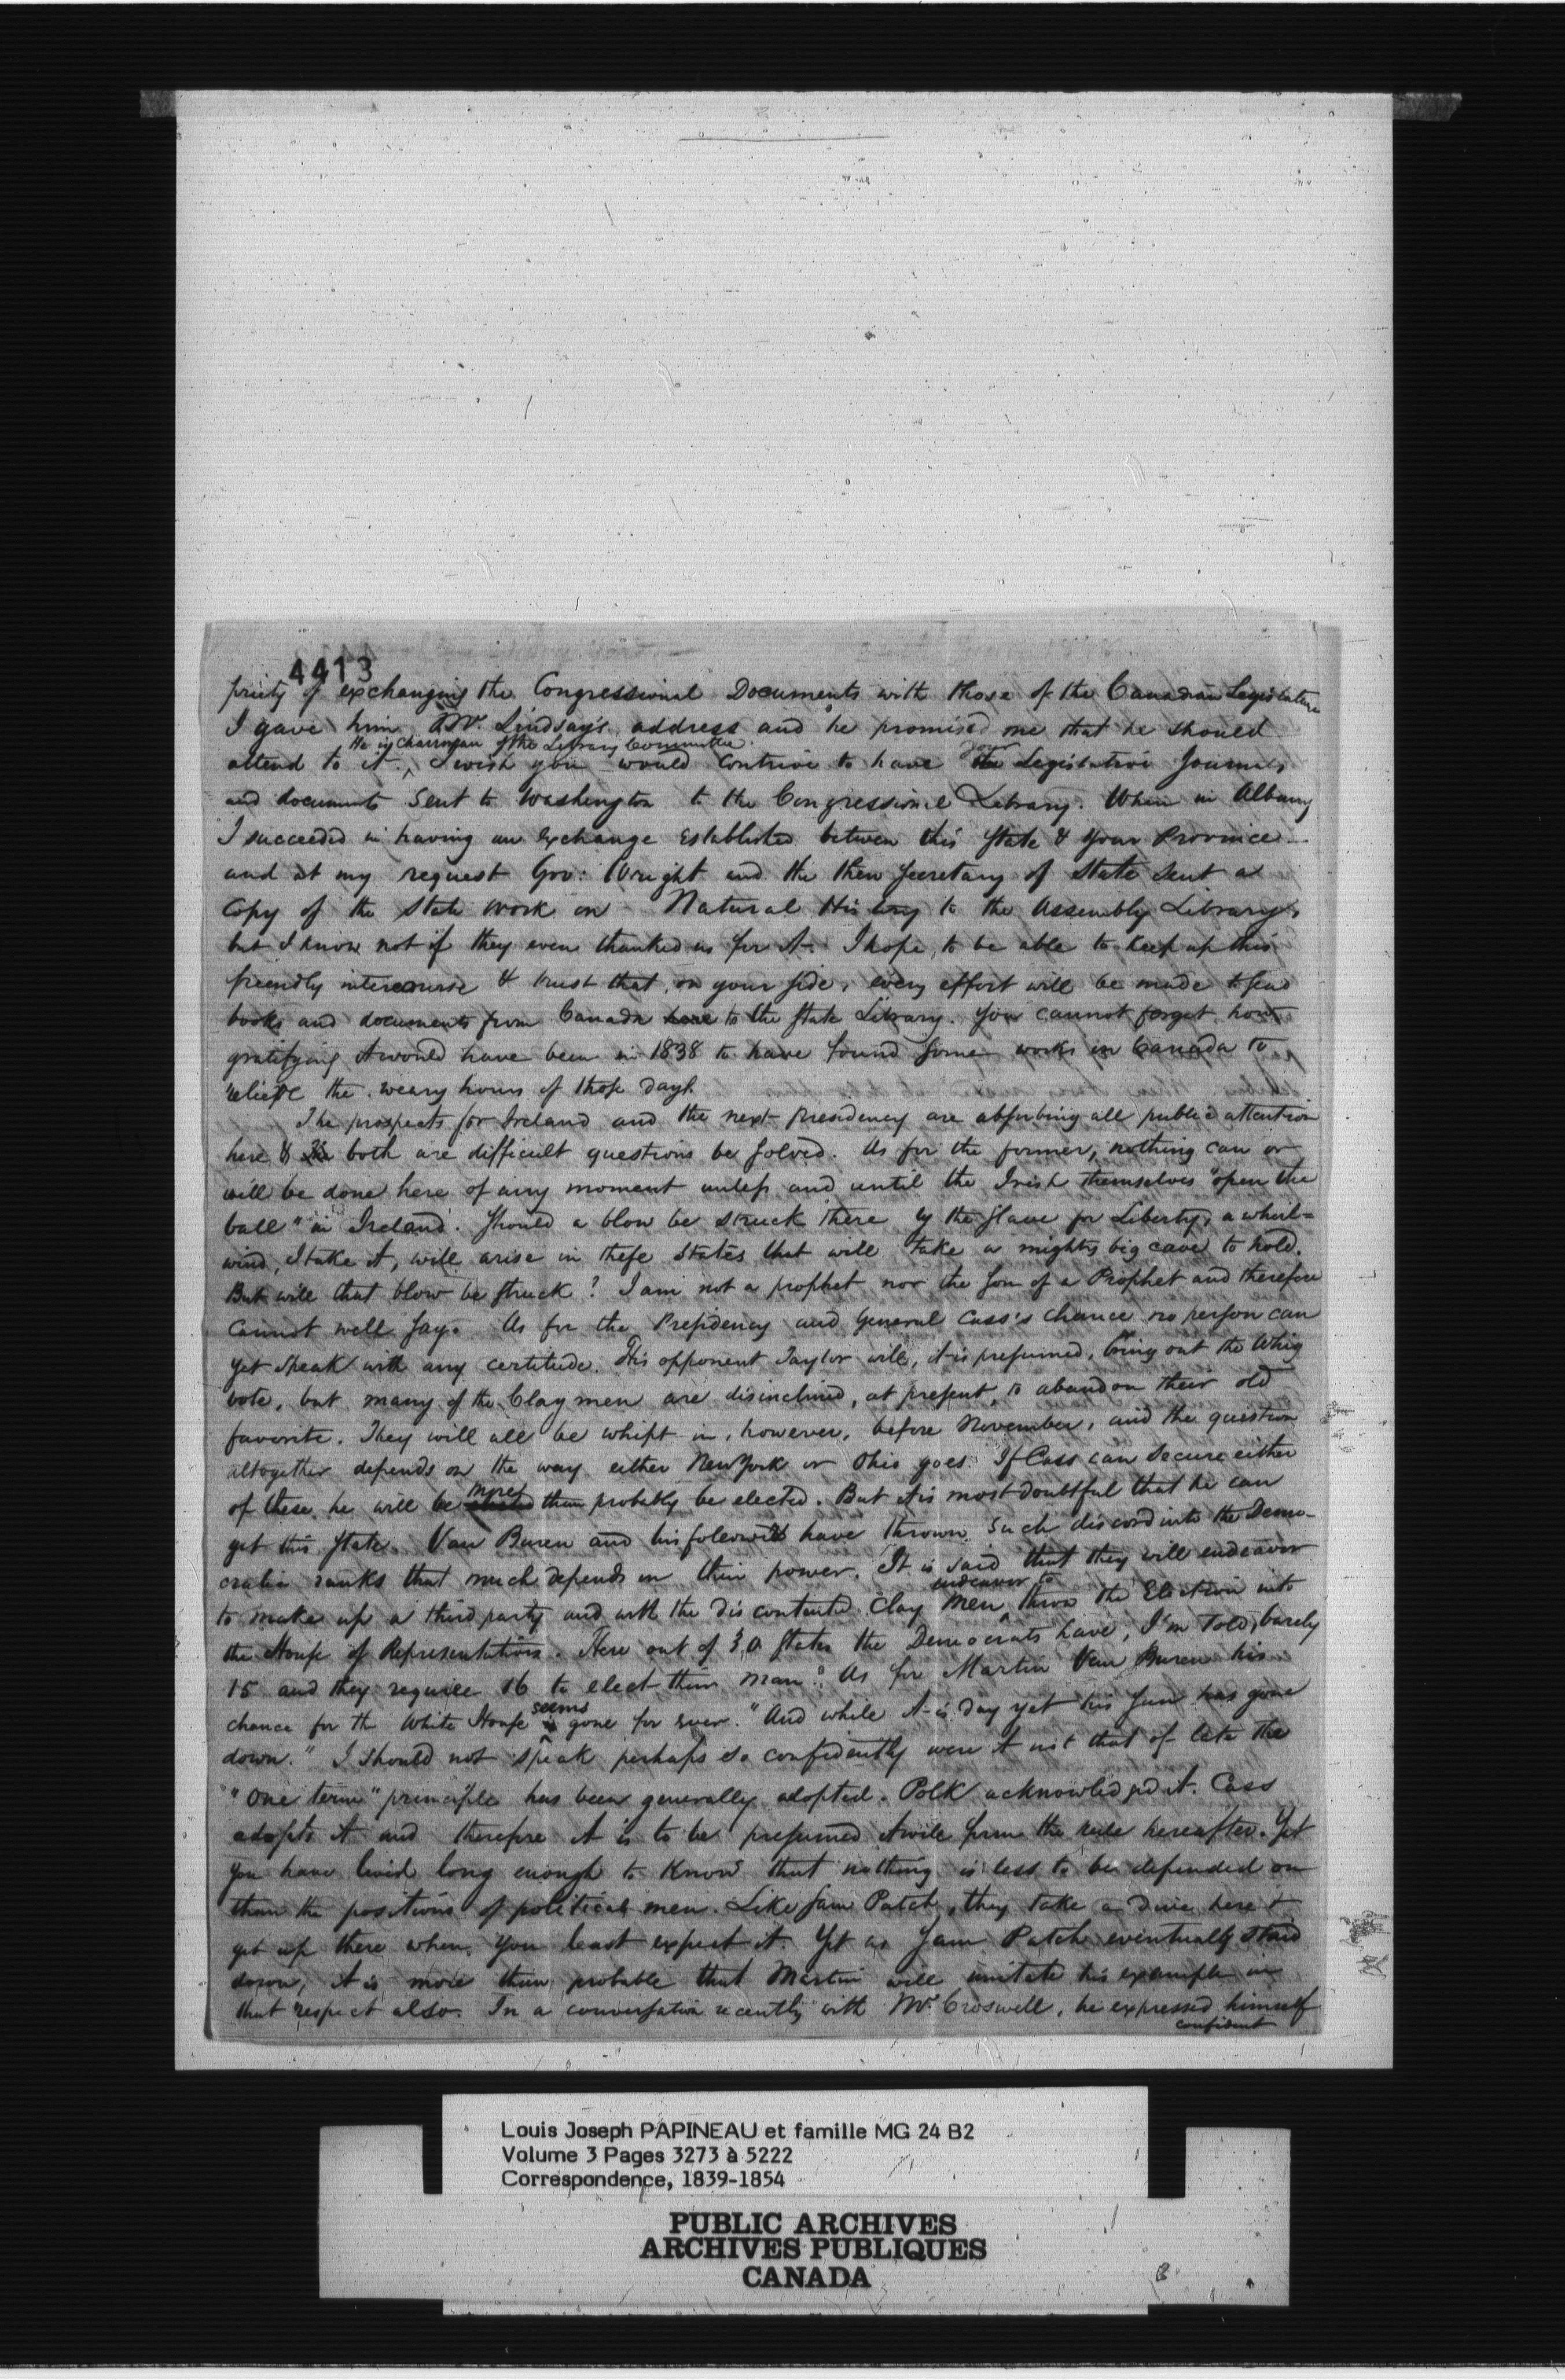 4413
priety of exchanging the Congressional Documents with those of the Canadian Legislature
I gave him Mr. Lindsay's address and he promised me that he should
He is chairman of the Library Committee.
attend to it. I wish you would contrive to have your Legislative Journals
and documents sent to Washington to the Congressional Library. When in Albany
I succeeded in having an exchange established between this State & your Province
and at my request Gov: Wright and the then Secretary of State sent a
copy of the State work on Natural History to the Assembly Library,
but I know not if they even thanked us for it. I hope, to be able to keep up this
friendly intercourse & trust that, on your side, every effort will be made to send
books and documents from Canada here to the State Library. You cannot forget how
gratifying it would have been in 1838 to have found some works in Canada to
relieve the weary hours of those days.
The prospects for Ireland and the next presidency are absorbing all public attention
here & the both are difficult questions be solved. As for the former, nothing can or
will be done here of any moment unless and until the Irish themselves "open the
ball" in Ireland. Should a blow be struck there by the slave for Liberty, a whirl=
wind, I take it, will arise in these States that will take a mighty big cave to hold.
But will that blow be struck? I am not a prophet nor the son of a Prophet and therefore
cannot well say. As for the Presidency and General Cass's chance no person can
yet speak with any certitude. His opponent Taylor will, it is presumed, bring out the Whig
vote, but many of the Clay men are disinclined, at present, to abandon their old
favorite. They will all be whipt in, however, before November, and the question
altogether depends on the way either New York or Ohio goes. If Cass can secure either
of these he will be elected more than probably be elected. But it is most doubtful that he can
get this State. Van Buren and his folowers have thrown such discord into the Demo-
cratic ranks that much depends on their power. It is said that they will endeavor
to make up a third party and with the discontented Clay men endeavor to throw the Election into
the House of Representatives. Here out of 30 States the Democrats have, I'm told, barely
15 and they require 16 to elect their man. As for Martin Van Buren his
chance for the White House is seems gone for ever. "And while it is day yet his sun has gone
down." I should not speak perhaps so confidently were it not that of late the
"One term" principle has been generally adopted. Polk acknowledged it. Cass
adopts it and therefore it is to be presumed it will form the rule hereafter. Yet
you have lived long enough to know that nothing is less to be depended on
than the positions of political men. Like Sam Patch, they take a dive here &
get up there when you least expect it. Yet as Sam Patch eventually staid
down, it is more than probable that Martin will imitate his example in
that respect also. In a conversation recently with Mr. Croswell, he expressed himself
confident
Louis Joseph PAPINEAU et famille MG 24 B2
Volume 3 Pages 3273 à 5222
Correspondence, 1839-1854
PUBLIC ARCHIVES
ARCHIVES PUBLIQUES
CANADA